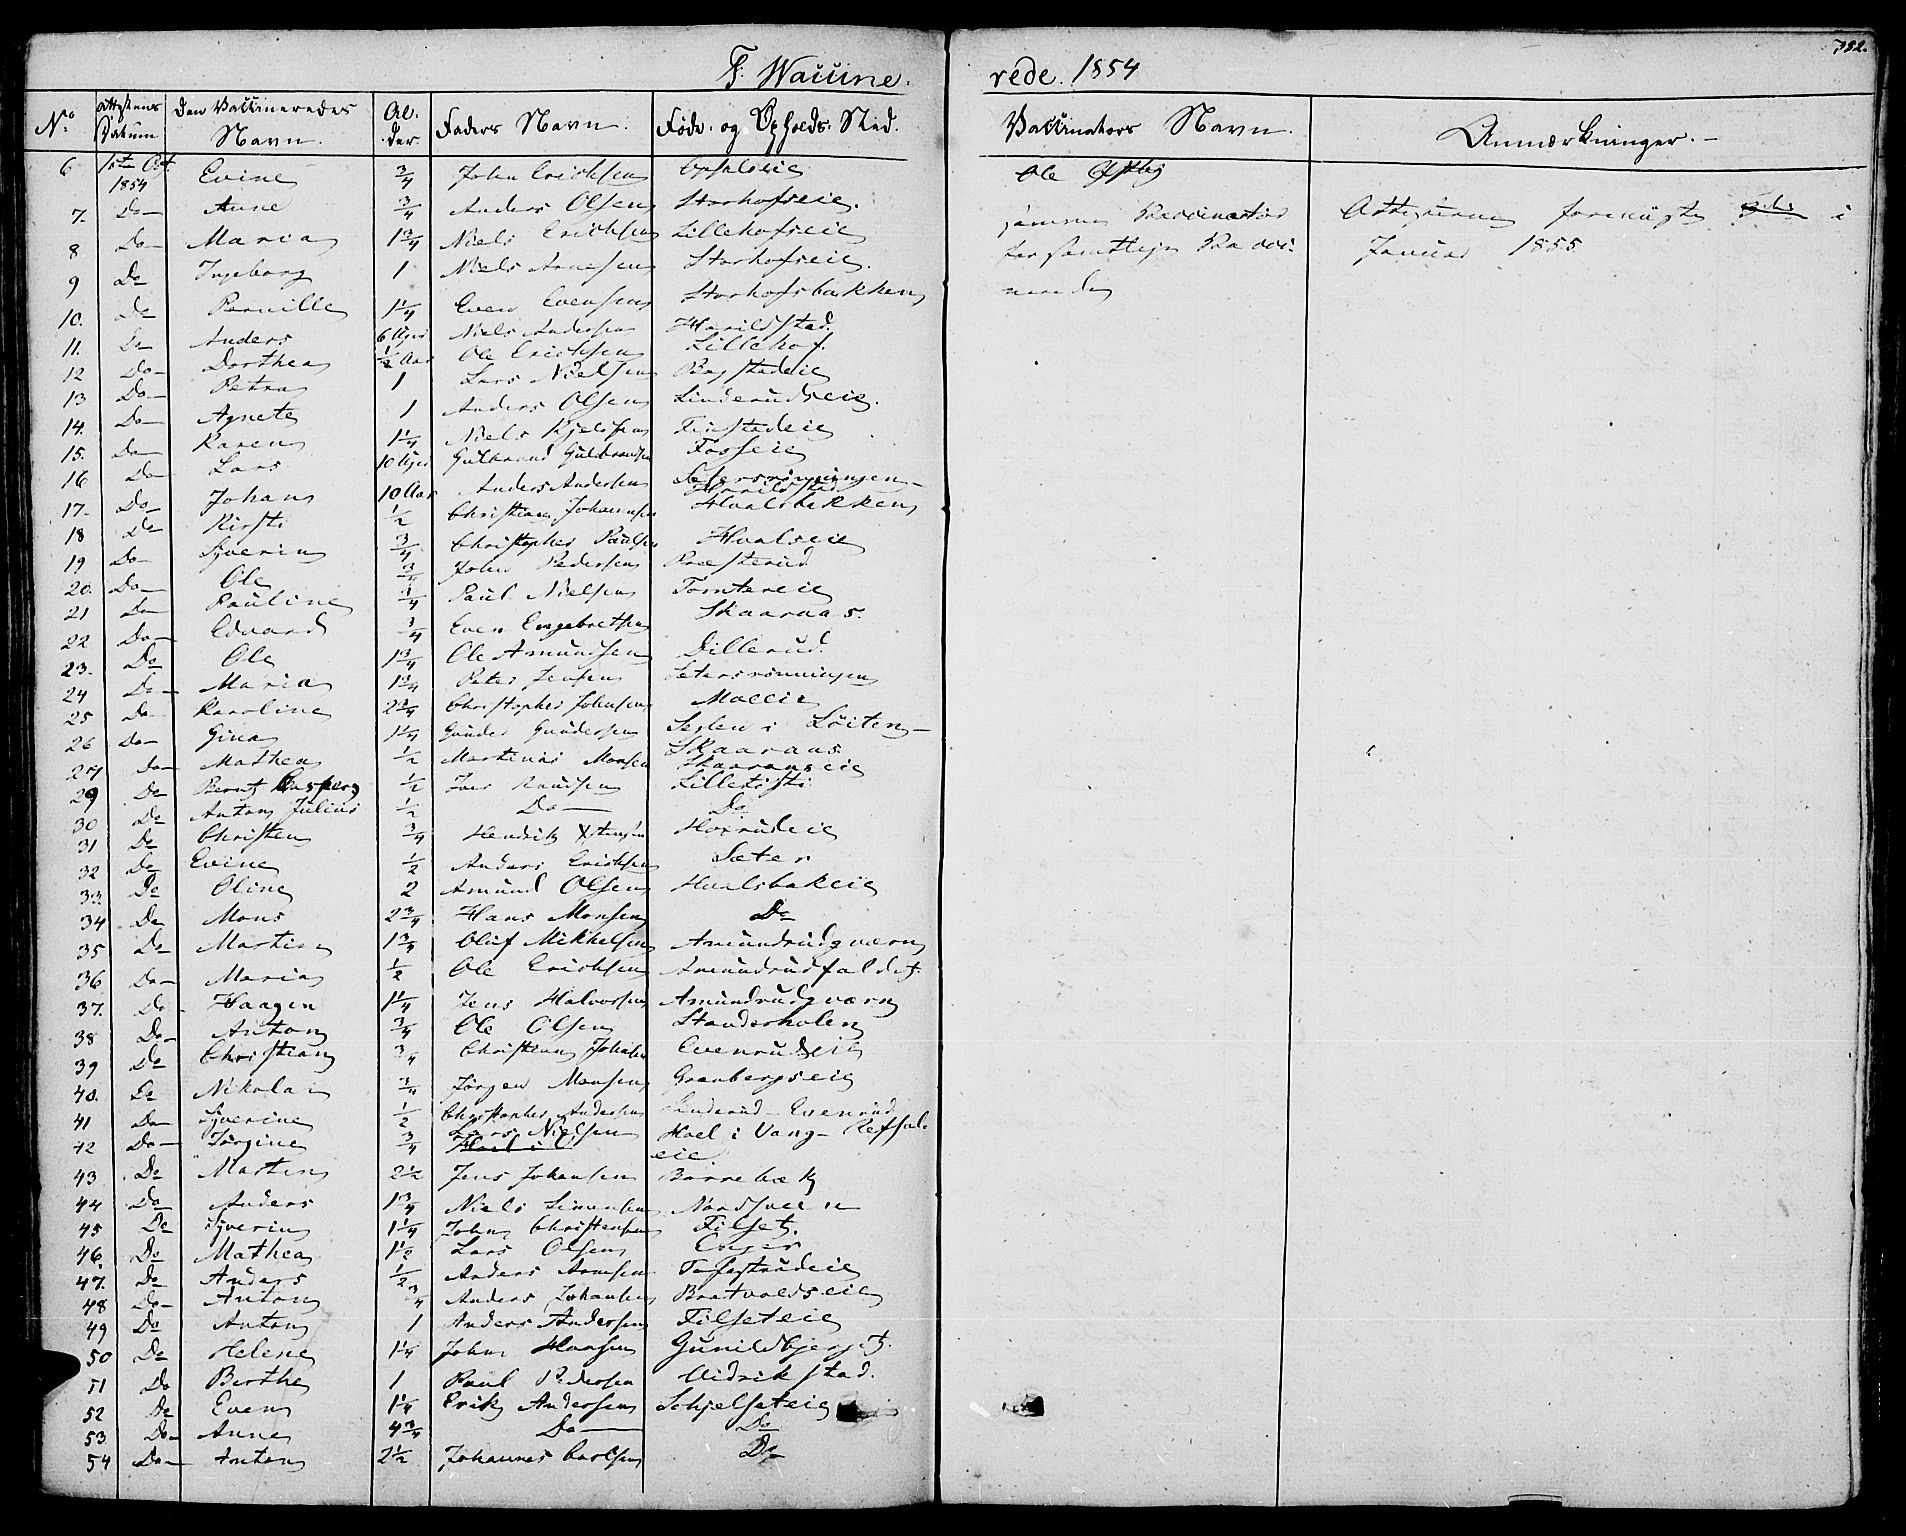 F. Waccine. rede. 1854
352.
No. Attestens Datum Den Vaccineredes Navn. Al. der. Faders Navn. Føde- og Opholds-Sted. Vaccinateurs Navn. Anmærkninger. -
6 1ste Oct. 1854 Evine 3/4 John Erichsen Opsalseie Ole Østby
7. Do- Anne 3/4 Anders Olsen Storhofseie. Attesterne i
8 Do- Maria 1 3/4 Niels Erichsen Lillehofseie for samtlige Vacci- Januar 1855
9 Do Ingeborg 1 Niels Arnesen Storhofseie. nerede
10. Do Pernille 1 1/4 Even Evensen Storhofsbakken
11. Do- Anders 6 Uger Niels Andersen Harildstad.
12 Do- Dorthea 1/2 Aar Ole Erichsen Lillehof.
13 Do- Petra 1 Lars Nielsen Bagstadeie
14. Do- Agnete 1 Anders Olsen Linderudseie.
15. Do- Karen 1 1/4 Niels Kjelsen Finstadeie
16 Do- Lars 10 Uger Gulbrand Gulbrandsen Fosseie
17. Do- Johan 10 Aar Anders Andersen Setersrønningen- Harildstad
18 Do- Kirsti 1/2 Christian Johannsen Hvalsbakken
19 Do- Syverin 3/4 Christopher Paulsen Hvalseie
20. Do- Ole 3/4 John Pedersen Præsterud
21 Do- Pauline 3/4 Paul Nielsen Tomtereie
22 Do- Edvard 3/4 Even Engebretsen Skaaraas.
23. Do Ole 1 3/4 Ole Amundsen Dillerud.
24 Do- Maria 1 3/4 Peter Jensen Setersrønningen
25 Do- Karoline 2 3/4 Christopher Johnsen Moeeie
26 Do- Gina 1 1/4 Gunder Gundersen i Løiten-
27 Do- Mathea 1/2 Martinus Monsen Skaaraas
29 Do Bernt Casper 1/2 Iver Knudsen Skaaraaseie Lilletøsti
30 Do Anton Julius 1/2 Do- Do
31 Do Christen 3/4 Hendrik Xstensen Hoxrudeie
32 Do Evine 1/2 Anders Erichsen Sæter
33. Do Oline 2 Amund Olsen Hvalsbakeie
34 Do Mons 2 3/4 Hans Monsen Do
35 Do- Martin 1 3/4 Oluf Mikkelsen Amundrudqværn
36 Do- Maria 1/2 Ole Erichsen Amundrudfaldet.
37. Do Haagen 1 1/4 Jens Halvorsen Amundrudqværn
38 Do- Anton 3/4 Ole Olsen Standerholen
39 Do Christian 3/4 Christian Johnsen Evenrudeie
40. Do Nikolai 3/4 Jørgen Monsen Grønbergseie
41 Do- Syverine 1/2 Christopher Andersen Evenrud
42 Do- Jørgine 3/4 Lars Nielsen Hoel i Vang- Refsal- eie
43 Do Martin 2 1/2 Jens Johansen Børrebæk
44 Do Anders 1 3/4 Niels Simensen Nordsveen
45 Do Syverin 1 1/4 John Christensen Filset.
46. Do Mathea 1 1/2 Lars Olsen Enger
47. Do Anders 1/2 Anders Arnesen
48 Do- Anton 3/4 Anders Johansen Bratvoldseie
49 Do Anton 1 Anders Andersen Filseteie
50 Do Helene 1 1/4 John Hansen Gunildbjerget.
51 Do Berthe 1 Paul Pedersen Vidrikstad.
52 Do Even 1 1/4 Erik Andersen Schjelseteie
53 Do- Anne 4 3/4 Do- Do
54 Do- Anton 2 1/2 Johannes Carlsen Do